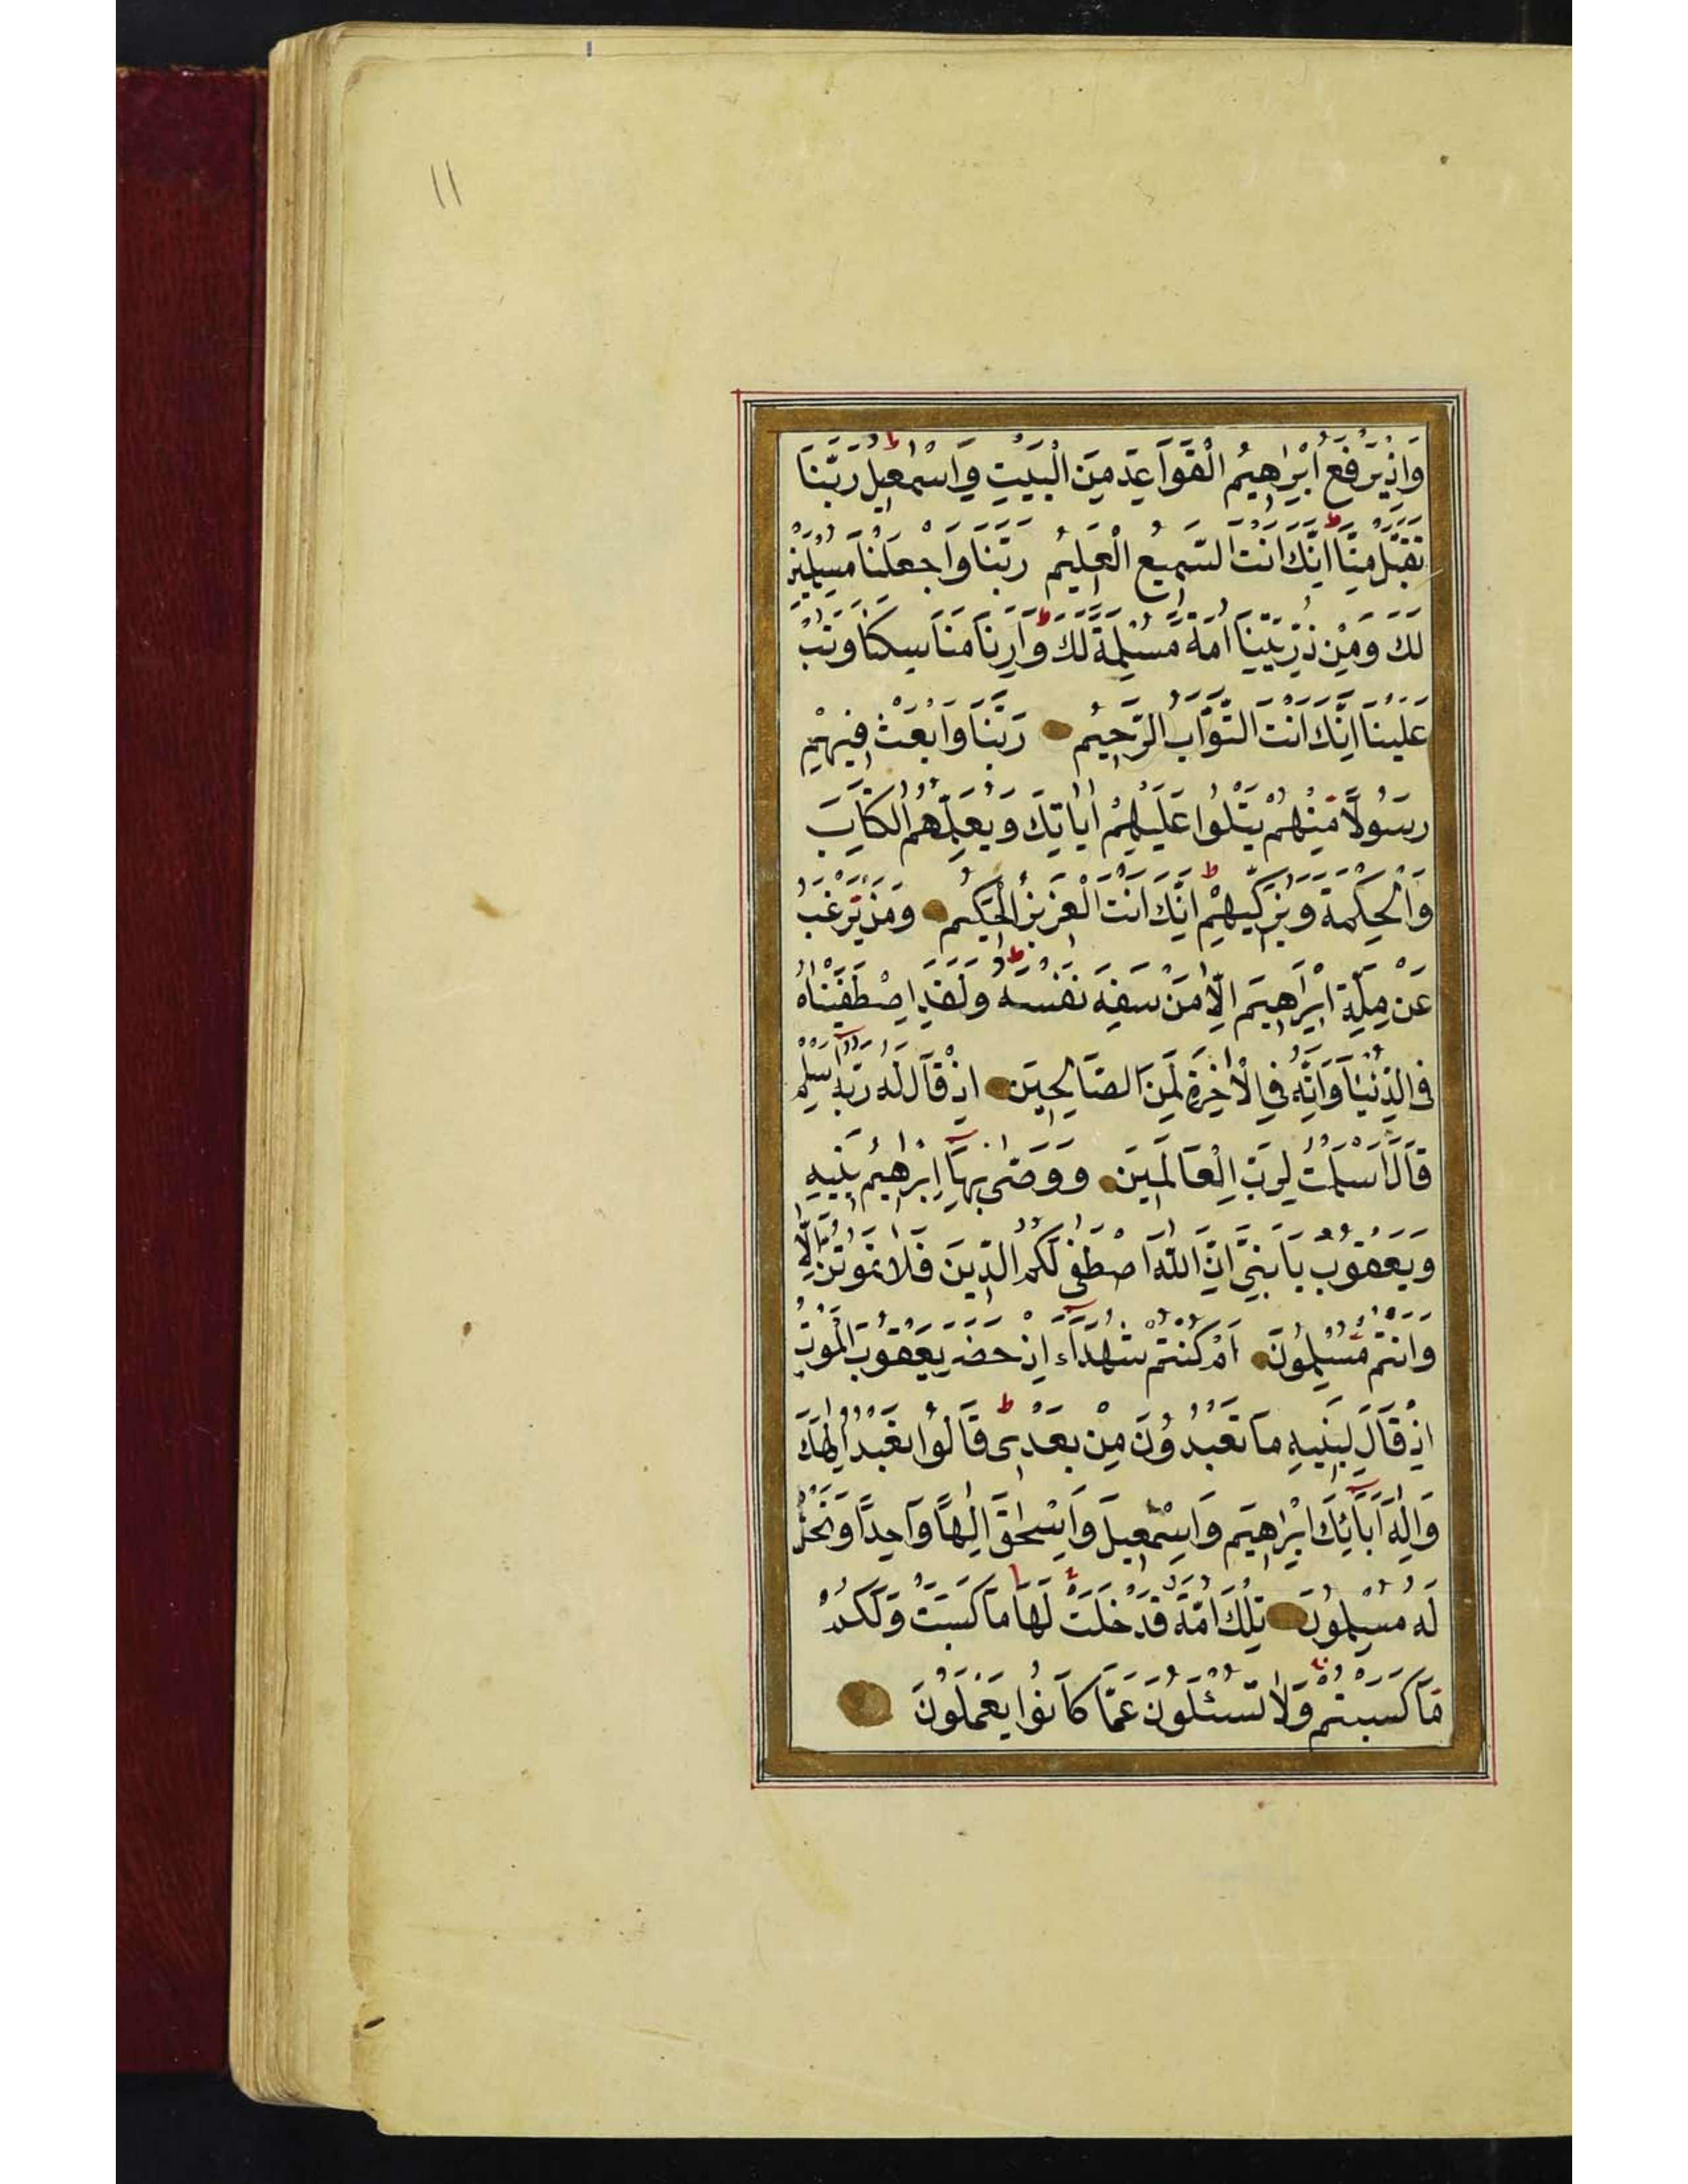 ١١
وَاِذْ يَرْفَعُ اِبْرٰهِيمُ الْقَوَاعِدَ مِنَ الْبَيْتِ وَاِسْمٰعِيلُ رَبَّنَا
تَقَبَّلْ مِنَّا اِنَّكَ اَنْتَ السَّمِيعُ الْعَلِيمُ رَبَّنَا وَاجْعَلْنَا مُسْلِمَيْنِ
لَكَ وَمِنْ ذُرِّيَّتِنَا اُمَّةً مُسْلِمَةً لَكَ وَاَرِنَا مَنَاسِكَنَا وَتُبْ
عَلَيْنَا اِنَّكَ اَنْتَ التَّوَّابُ الرَّحِيمُ رَبَّنَا وَابْعَثْ فِيهِمْ
رَسُولًا مِنْهُمْ يَتْلُوا عَلَيْهِمْ اٰيَاتِكَ وَيُعَلِّمُهُمُ الْكِتَابَ
وَالْحِكْمَةَ وَيُزَكِّيهِمْ اِنَّكَ اَنْتَ الْعَزِيزُ الْحَكِيمُ وَمَنْ يَرْغَبُ
عَنْ مِلَّةِ اِبْرٰهِيمَ اِلَّا مَنْ سَفِهَ نَفْسَهُ وَلَقَدِ اصْطَفَيْنَاهُ
فِي الدُّنْيَا وَاِنَّهُ فِي الْاٰخِرَةِ لَمِنَ الصَّالِحِينَ اِذْ قَالَ لَهُ رَبُّهُ اَسْلِمْ
قَالَ اَسْلَمْتُ لِرَبِّ الْعَالَمِينَ وَوَصّٰى بِهَا اِبْرٰهِيمُ بَنِيهِ
وَيَعْقُوبُ يَا بَنِيَّ اِنَّ اللّٰهَ اصْطَفٰى لَكُمُ الدِّينَ فَلَا تَمُوتُنَّ اِلَّا
وَاَنْتُمْ مُسْلِمُونَ اَمْ كُنْتُمْ شُهَدَاءَ اِذْ حَضَرَ يَعْقُوبَ الْمَوْتُ
اِذْ قَالَ لِبَنِيهِ مَا تَعْبُدُونَ مِنْ بَعْدِى قَالُوا نَعْبُدُ اِلٰهَكَ
وَاِلٰهَ اٰبَائِكَ اِبْرٰهِيمَ وَاِسْمٰعِيلَ وَاِسْحٰقَ اِلٰهًا وَاحِدًا وَنَحْنُ
لَهُ مُسْلِمُونَ تِلْكَ اُمَّةٌ قَدْ خَلَتْ لَهَا مَا كَسَبَتْ وَلَكُمْ
مَا كَسَبْتُمْ وَلَا تُسْئَلُونَ عَمَّا كَانُوا يَعْمَلُونَ